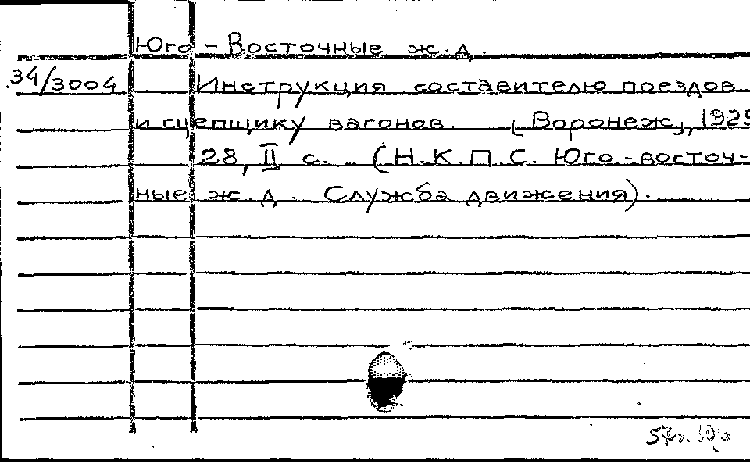 Юго-Восточные ж.д.
34/3004 Инструкция составителю поездов
и сцепщику вагонов. [Воронеж], 1929
28, II с. (Н.К.П.С. Юго-восточ-
ные ж.д. Служба движения).